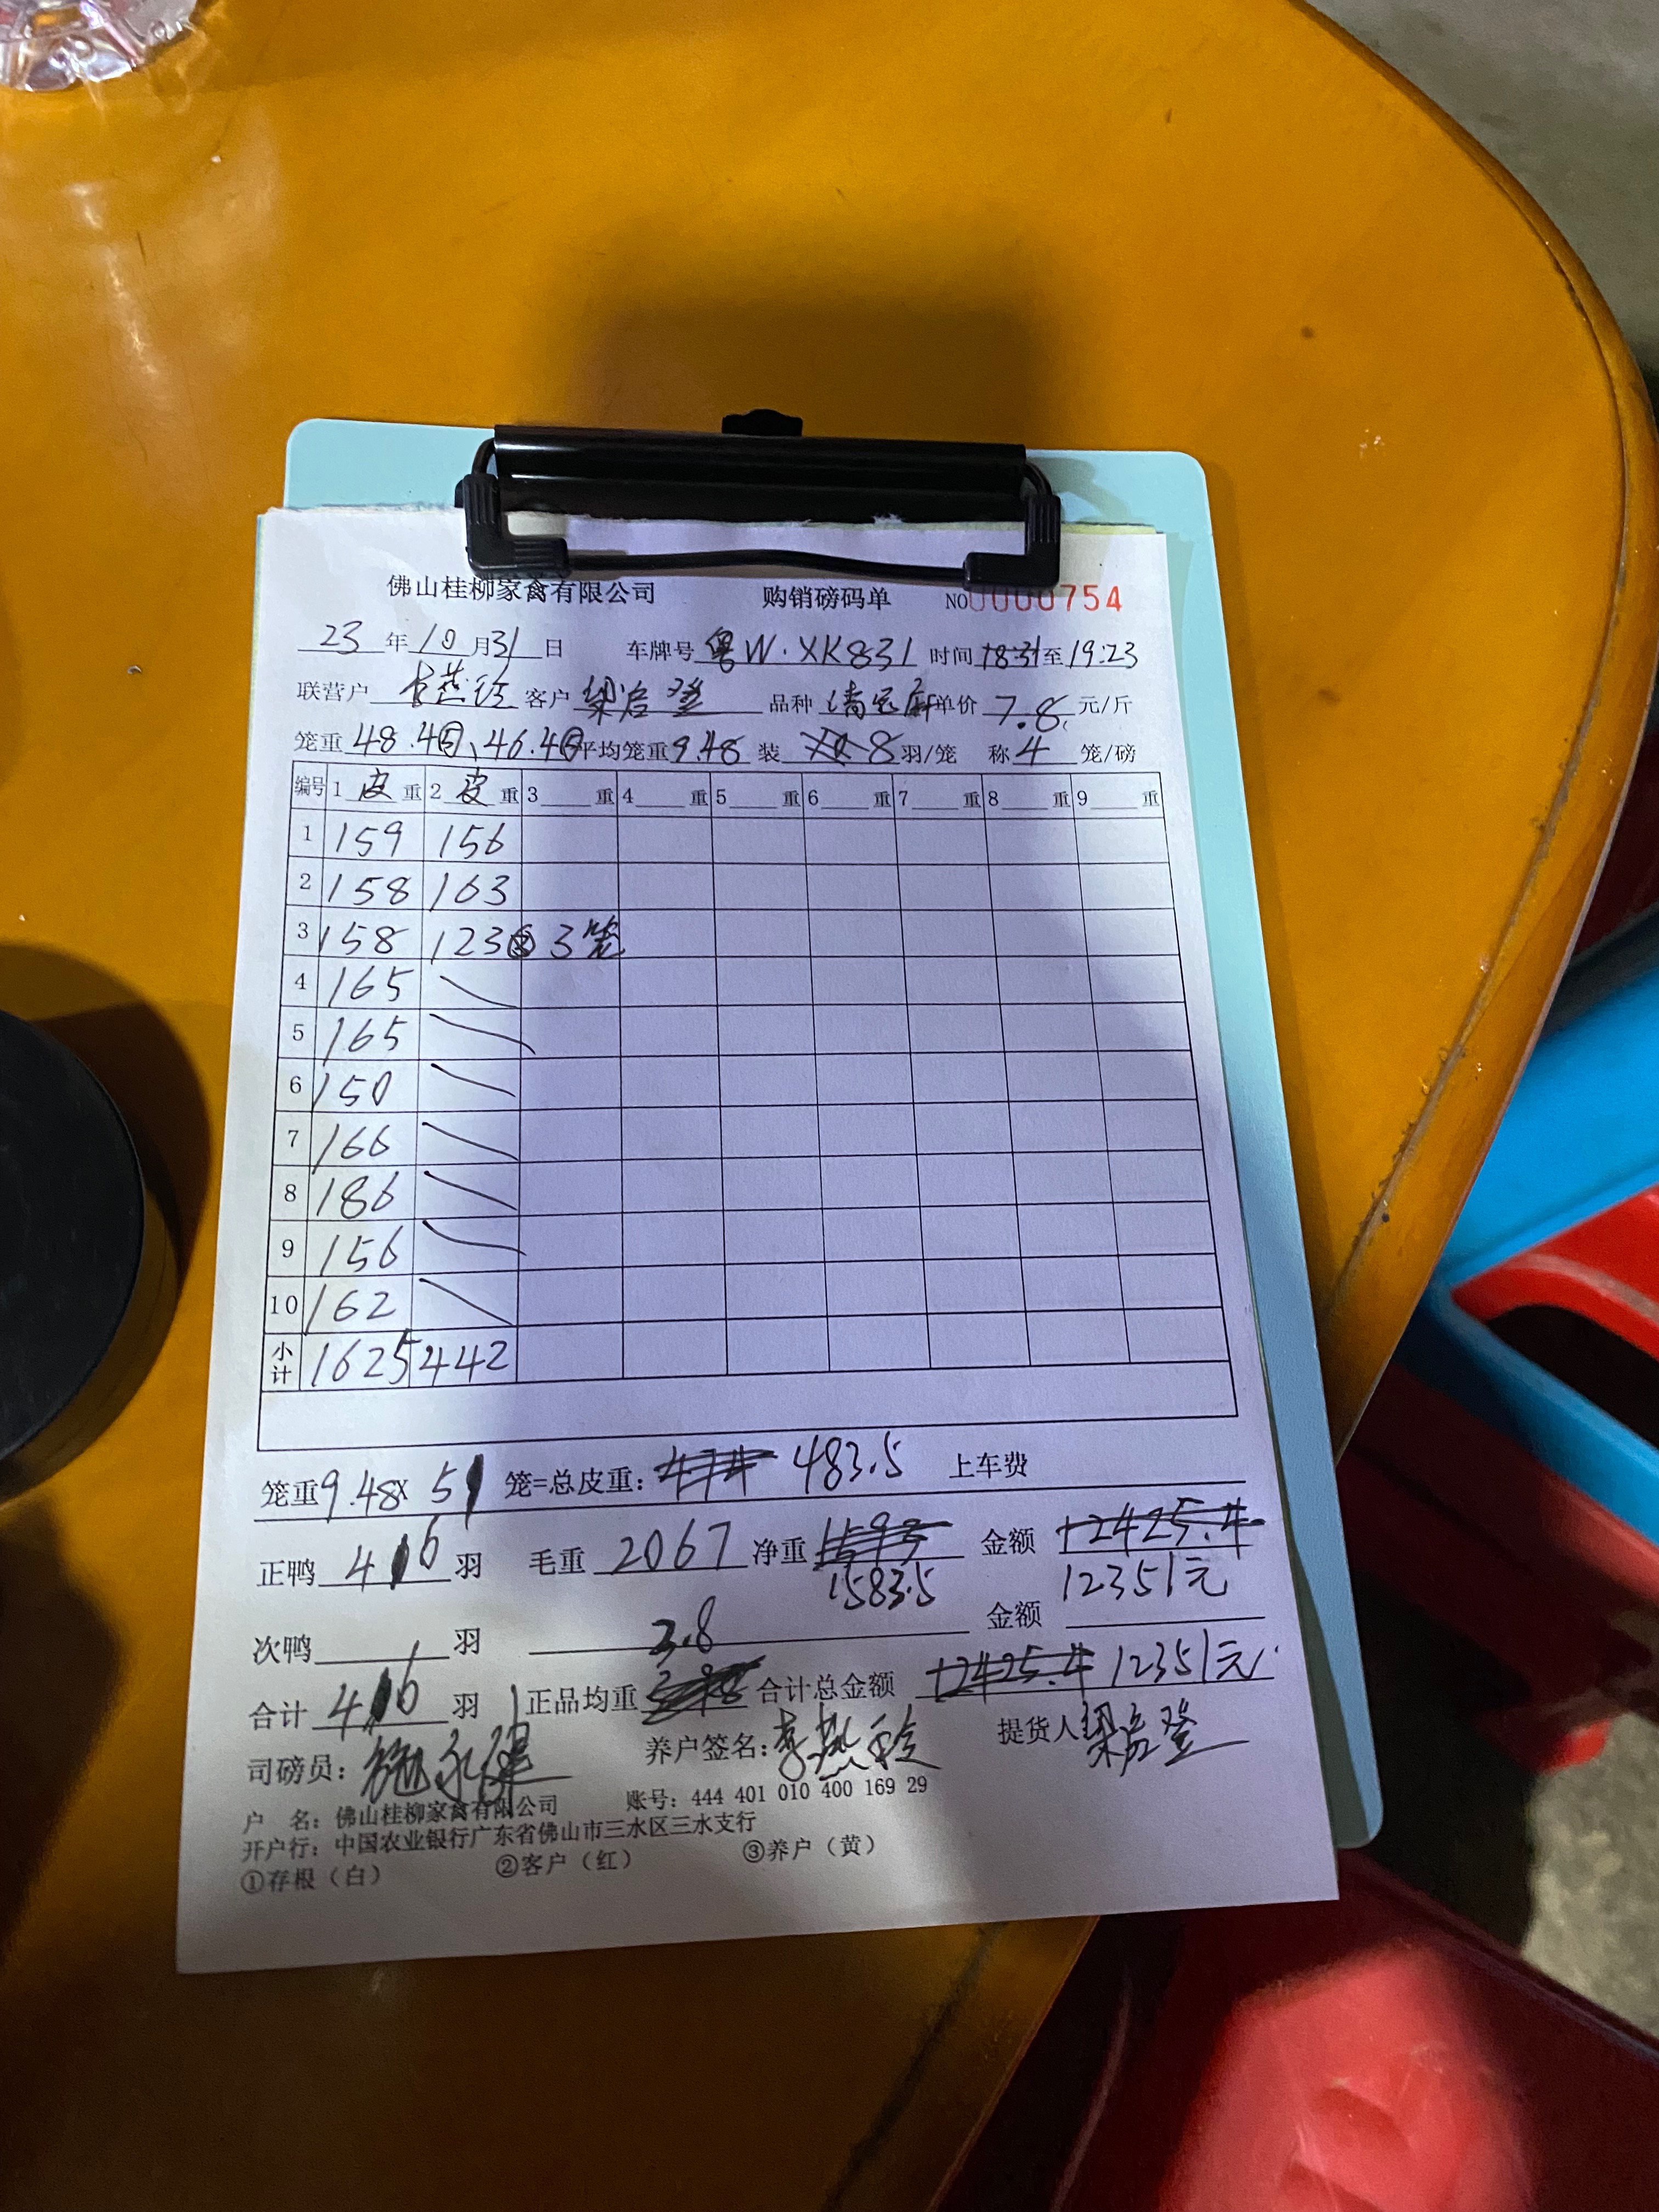 佛山桂柳家禽有限公司 购销磅码单 NO0000754
23年10月31日 车牌号粤W·XK831 时间18:31至19:23
联营户 客户梁启登 品种 单价7.8元/斤
笼重48.4⑤、46.4⑤平均笼重9.48装8羽/笼 称4笼/磅
编号 1皮重 2皮重 3重 4重 5重 6重 7重 8重 9重
1 159 156
2 158 163
3 158 123③ 3笼
4 165
5 165
6 150
7 166
8 186
9 156
10 162
小计 1625 442
笼重9.48X51笼=总皮重: 483.5 上车费
正鸭416羽 毛重2067净重1593 金额12425.4
1583.5 12351元
次鸭羽 金额
3.8
合计416羽 正品均重 合计总金额12425.4 12351元
司磅员: 养户签名: 提货人梁启登
户 名: 佛山桂柳家禽有限公司 账号: 444 401 010 400 169 29
开户行: 中国农业银行广东省佛山市三水区三水支行
①存根（白） ②客户（红） ③养户（黄）